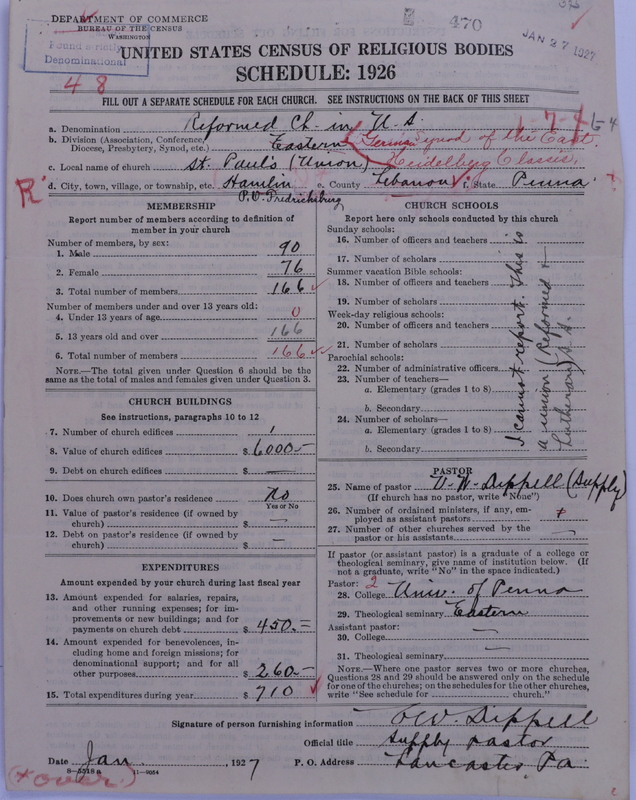 DEPARTMENT OF COMMERCE
BUREAU OF THE CENSUS
WASHINGTON
Denominational
48
470
JAN 27 1927
UNITED STATES CENSUS OF RELIGIOUS BODIES
SCHEDULE: 1926
FILL OUT A SEPARATE SCHEDULE FOR EACH CHURCH. SEE INSTRUCTIONS ON THE BACK OF THIS SHEET
a. Denomination Reformed Ch. in U.S.
b. Division (Association, Conference, Diocese, Presbytery, Synod, etc.) Eastern German Synod of the East
c. Local name of church St. Paul's (Union) Heidelberg Classis,
R
d. City, town, village, or township, etc. Hamlin e. County Lebanon f. State Penna
P.O. Fredricksburg
MEMBERSHIP
Report number of members according to definition of member in your church
Number of members, by sex:
1. Male 90
2. Female 76
3. Total number of members 166
Number of members under and over 13 years old:
4. Under 13 years of age 0
5. 13 years old and over 166
6. Total number of members 166
NOTE.—The total given under Question 6 should be the same as the total of males and females given under Question 3.
CHURCH BUILDINGS
See instructions, paragraphs 10 to 12
7. Number of church edifices 1
8. Value of church edifices $ 6000.—
9. Debt on church edifices $ —
10. Does church own pastor's residence No
Yes or No
11. Value of pastor's residence (if owned by church) $ —
12. Debt on pastor's residence (if owned by church) $ —
EXPENDITURES
Amount expended by your church during last fiscal year
13. Amount expended for salaries, repairs, and other running expenses; for improvements or new buildings; and for payments on church debt $ 450.—
14. Amount expended for benevolences, including home and foreign missions; for denominational support; and for all other purposes $ 260.—
15. Total expenditures during year $ 710
CHURCH SCHOOLS
Report here only schools conducted by this church
Sunday schools:
16. Number of officers and teachers
17. Number of scholars
Summer vacation Bible schools:
18. Number of officers and teachers
19. Number of scholars
Week-day religious schools:
20. Number of officers and teachers
21. Number of scholars
Parochial schools:
22. Number of administrative officers
23. Number of teachers—
a. Elementary (grades 1 to 8)
b. Secondary
24. Number of scholars—
a. Elementary (grades 1 to 8)
b. Secondary
I cannot report. This is
a union (Reformed +
Lutheran) S.S.
PASTOR
25. Name of pastor O.W. Dippell (Supply)
(If church has no pastor, write "None")
26. Number of ordained ministers, if any, employed as assistant pastors
27. Number of other churches served by the pastor or his assistants —
If pastor (or assistant pastor) is a graduate of a college or theological seminary, give name of institution below. (If not a graduate, write "No" in the space indicated.)
Pastor: 2
28. College Univ. of Penna
29. Theological seminary Eastern
Assistant pastor:
30. College —
31. Theological seminary —
NOTE.—Where one pastor serves two or more churches, Questions 28 and 29 should be answered only on the schedule for one of the churches; on the schedules for the other churches, write "See schedule for church."
Signature of person furnishing information O.W. Dippell
Official title Supply Pastor
Date Jan, 1927 P. O. Address Lancaster, Pa.
8-5518a 11-9664
(* over.)